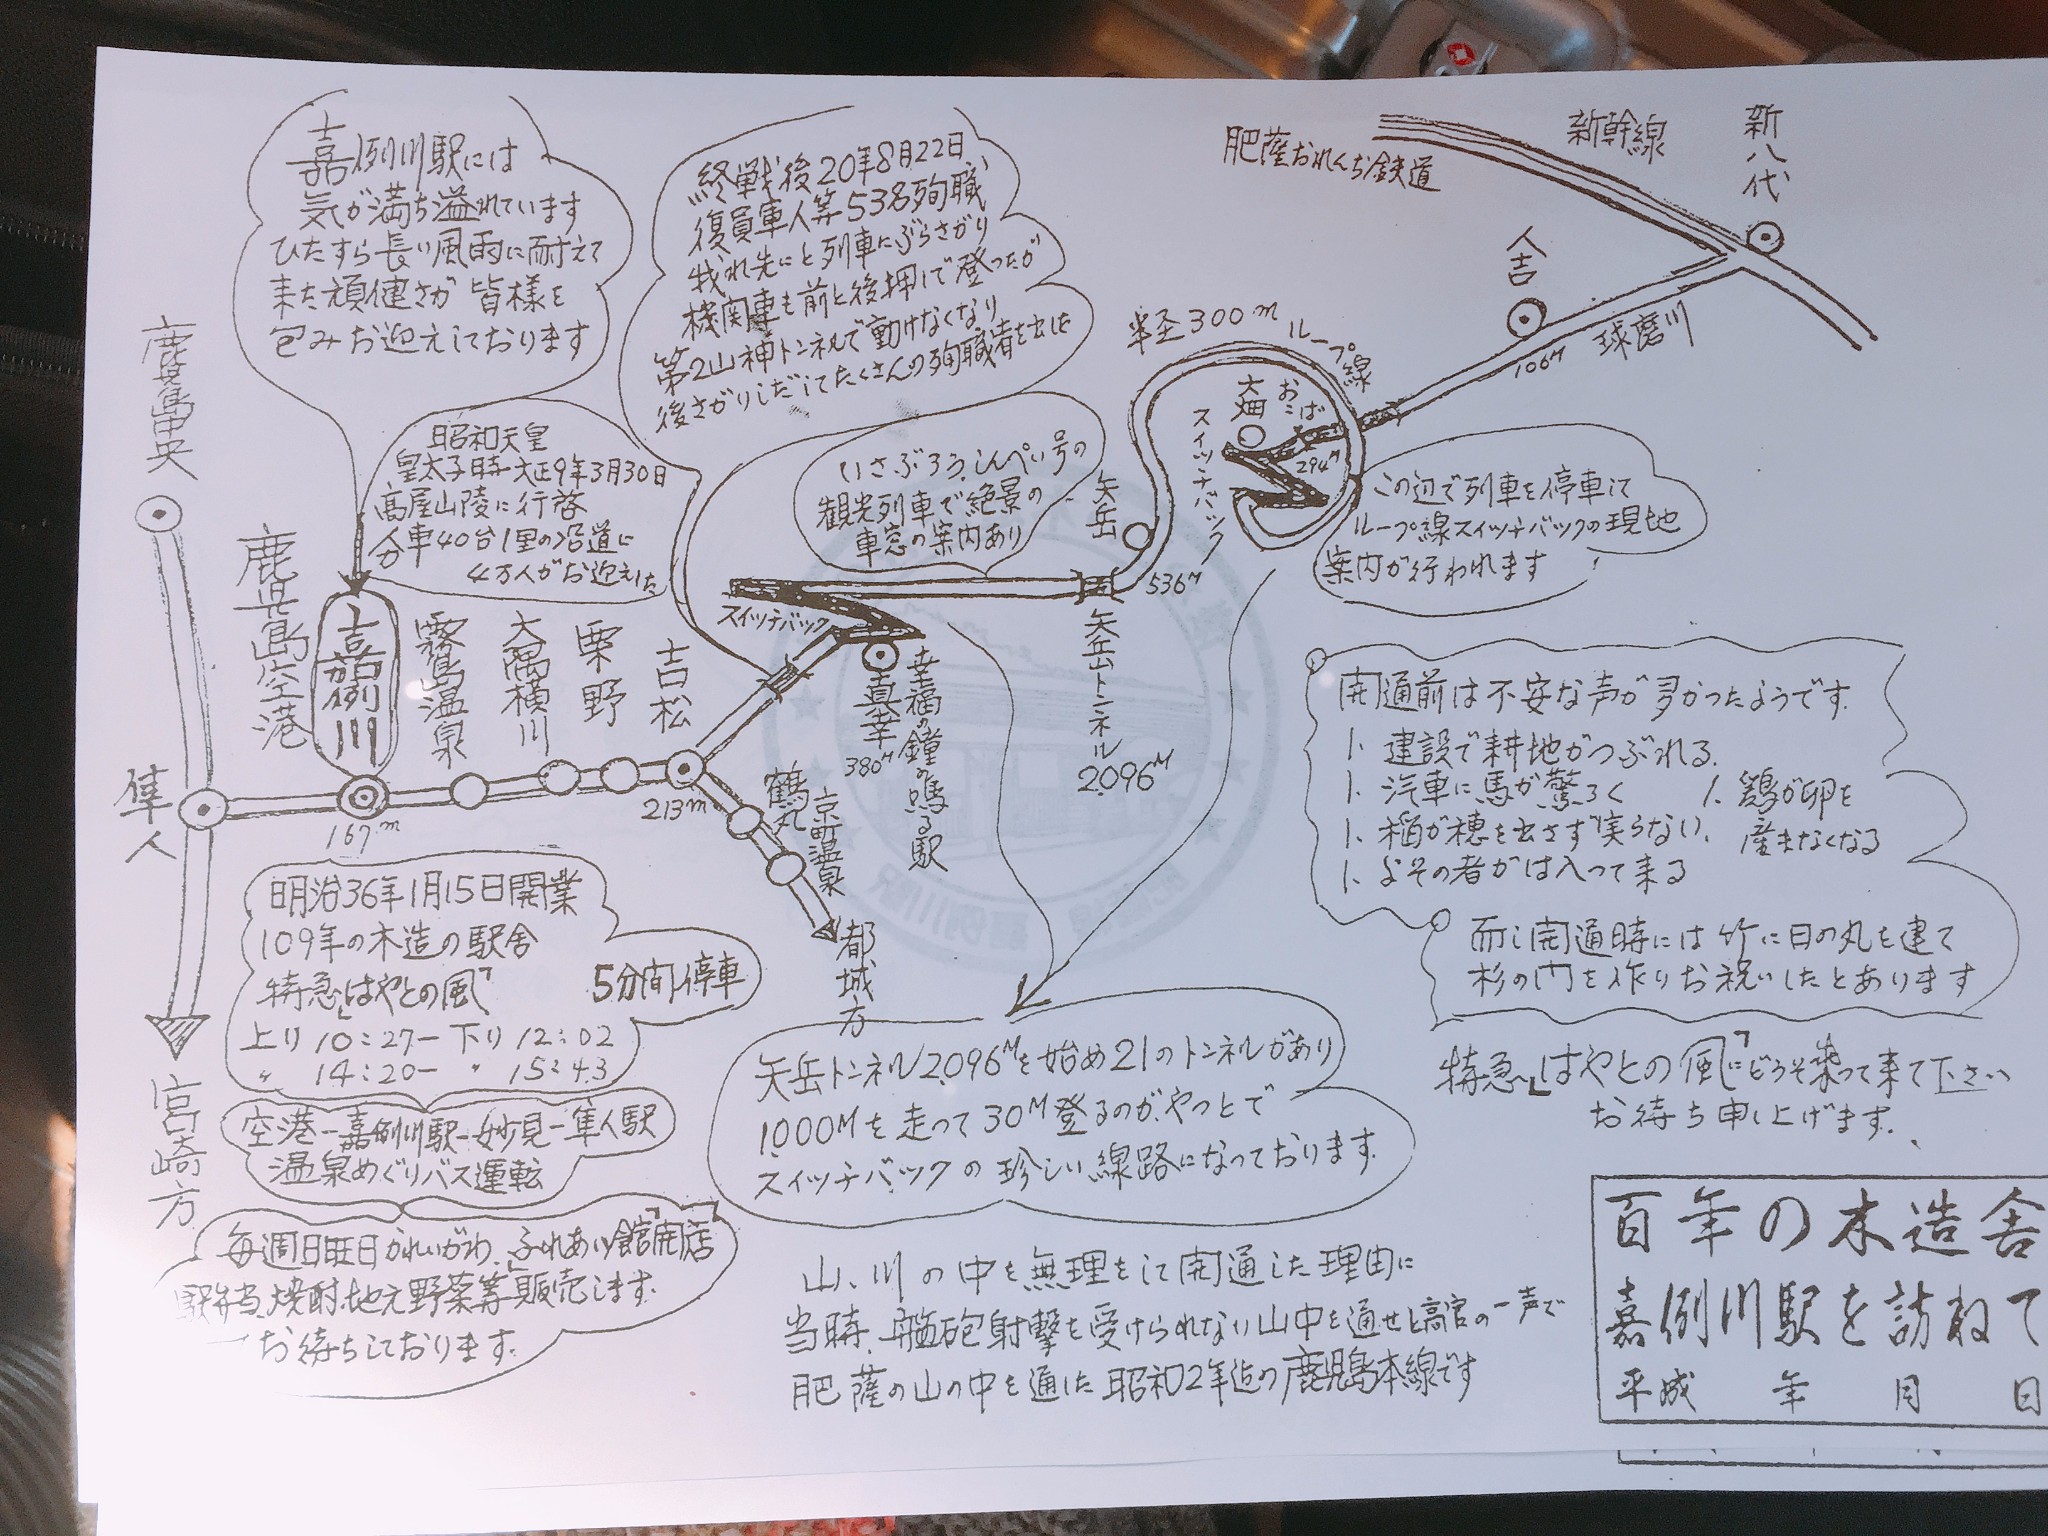 嘉例川駅には
気が満ち溢れています
ひたすら長い風雨に耐えて
来た頑健さが皆様を
包みお迎えしております
終戦後20年8月22日
復員軍人等53名殉職
我れ先にと列車にぶらさがり
機関車も前と後押しで登ったが
第2山神トンネルで動けなくなり
後さがりしだしてたくさんの殉職者を出した
肥薩おれんぢ鉄道
新幹線
新八代
人吉
球磨川
106M
半径300m
ループ線
大畑
おこば
スイッチバック
294M
昭和天皇
皇太子時大正9年3月30日
高屋山陵に行啓
人力車40台1里の沿道に
4万人がお迎えした
いさぶろう、しんぺい号の
観光列車で絶景の
車窓の案内あり
矢岳
536M
この辺で列車を停車して
ループ線スイッチバックの現地
案内が行われます
鹿児島中央
鹿児島空港
嘉例川
霧島温泉
大隅横川
栗野
吉松
スイッチバック
真幸
380M
幸福の鐘の鳴る駅
矢岳山トンネル
2.096M
隼人
167m
213m
鶴丸
京町温泉
都城方
宮崎方
開通前は不安な声が多かったようです
1. 建設で耕地がつぶれる
1. 汽車に馬が驚ろく
1. 鶏が卵を
産まなくなる
1. 稲が穂を出さず実らない
1. よその者がは入って来る
而し開通時には竹に日の丸を建て
杉の門を作りお祝いしたとあります
明治36年1月15日開業
109年の木造の駅舎
特急「はやとの風」
5分間停車
上り10:27ー下り12:02
〃 14:20ー 〃 15:43
空港ー嘉例川駅ー妙見ー隼人駅
温泉めぐりバス運転
毎週日旺日かれいがわ「ふれあい館」開店
駅弁当、焼酎、地元野菜等販売します
お待ちしております
矢岳トンネル2.096Mを始め21のトンネルがあり
1.000Mを走って30M登るのがやっとで
スイッチバックの珍しい線路になっております
特急「はやとの風」にどうぞ乗って来て下さい
お待ち申し上げます
山、川の中を無理をして開通した理由に
当時、艦砲射撃を受けられない山中を通せと高官の一声で
肥薩の山の中を通した昭和2年迄の鹿児島本線です
百年の木造舎
嘉例川駅を訪ねて
平成 年 月 日